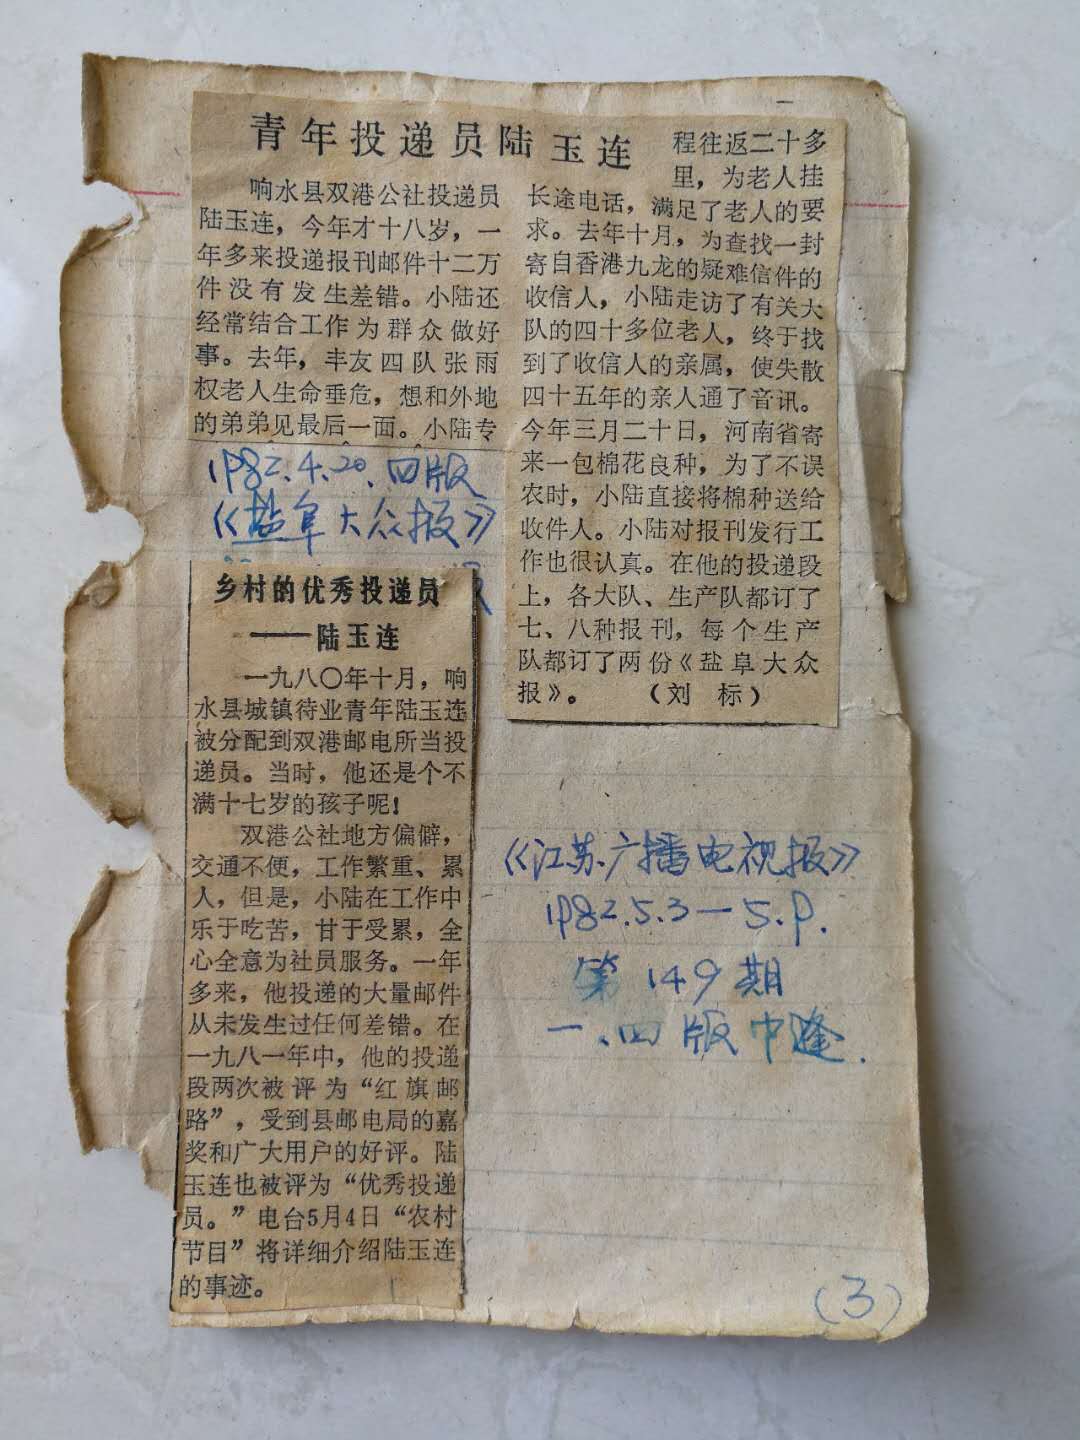 青年投递员陆玉连
响水县双港公社投递员
陆玉连，今年才十八岁，一
年多来投递报刊邮件十二万
件没有发生差错。小陆还
经常结合工作为群众做好
事。去年，丰友四队张雨
权老人生命垂危，想和外地
的弟弟见最后一面。小陆专
程往返二十多
里，为老人挂
长途电话，满足了老人的要
求。去年十月，为查找一封
寄自香港九龙的疑难信件的
收信人，小陆走访了有关大
队的四十多位老人，终于找
到了收信人的亲属，使失散
四十五年的亲人通了音讯。
今年三月二十日，河南省寄
来一包棉花良种，为了不误
农时，小陆直接将棉种送给
收件人。小陆对报刊发行工
作也很认真。在他的投递段
上，各大队、生产队都订了
七、八种报刊，每个生产
队都订了两份《盐阜大众
报》。（刘 标）
1982.4.20.四版
《盐阜大众报》
乡村的优秀投递员
——陆玉连
一九八〇年十月，响
水县城镇待业青年陆玉连
被分配到双港邮电所当投
递员。当时，他还是个不
满十七岁的孩子呢！
双港公社地方偏僻，
交通不便，工作繁重、累
人，但是，小陆在工作中
乐于吃苦，甘于受累，全
心全意为社员服务。一年
多来，他投递的大量邮件
从未发生过任何差错。在
一九八一年中，他的投递
段两次被评为“红旗邮
路”，受到县邮电局的嘉
奖和广大用户的好评。陆
玉连也被评为“优秀投递
员。”电台5月4日“农村
节目”将详细介绍陆玉连
的事迹。
《江苏广播电视报》
1982.5.3—5.9.
第149期
一、四版中逢.
(3)